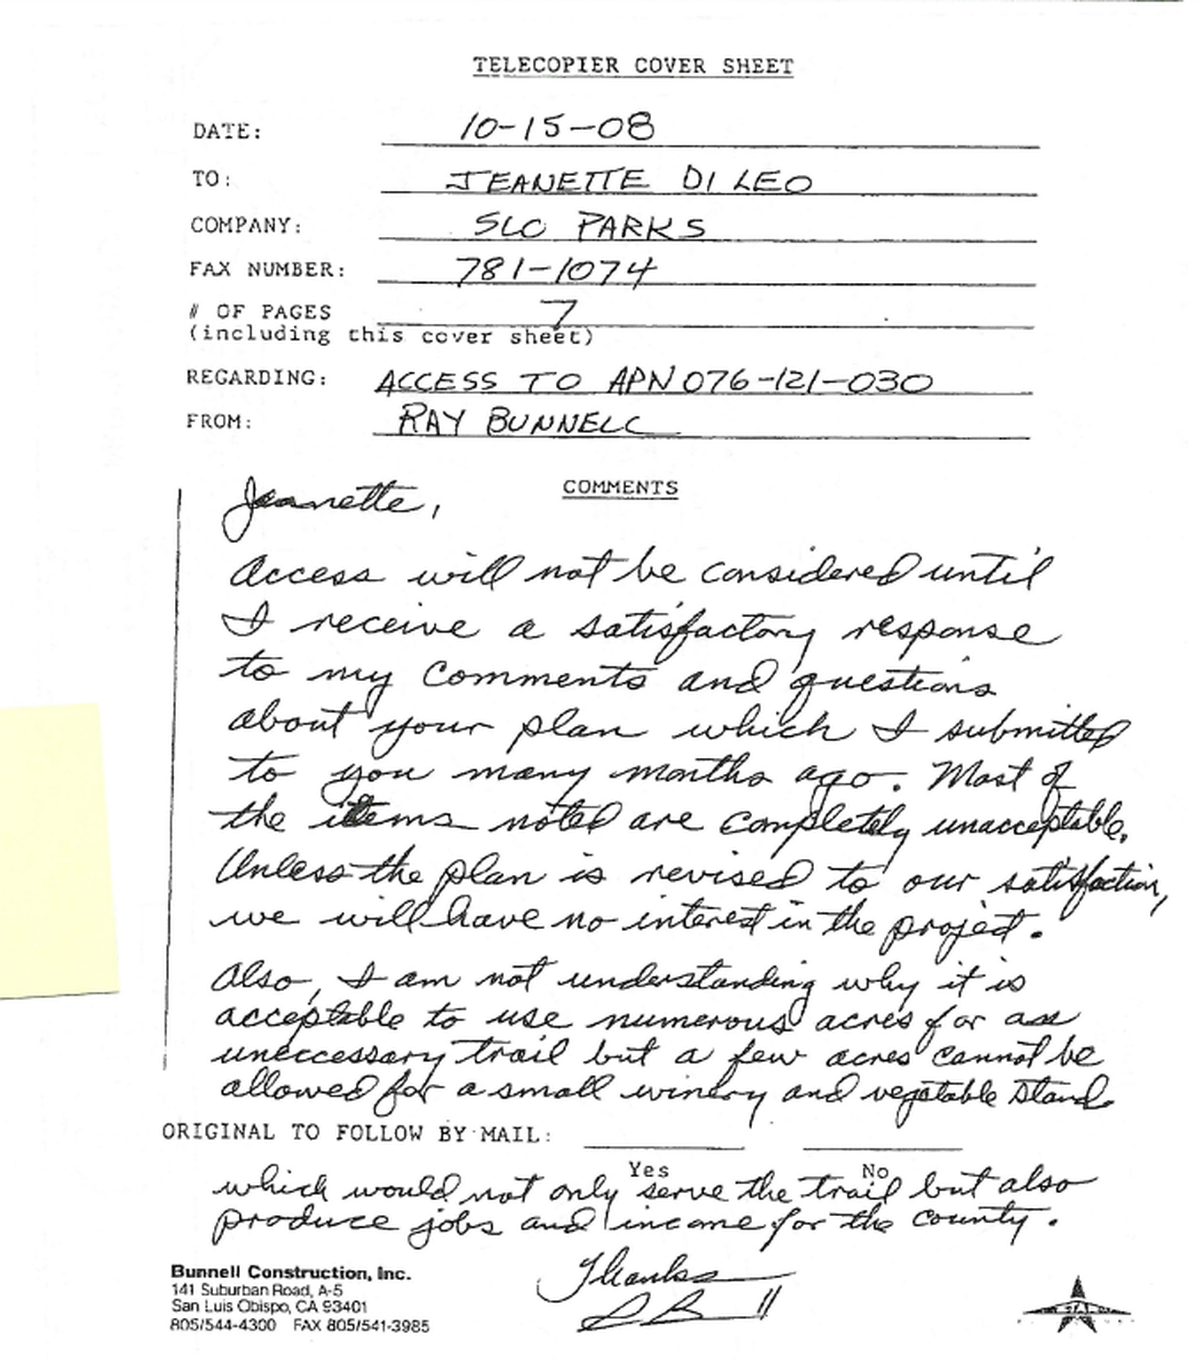 TELECOPIER COVER SHEET
DATE: 10-15-08
TO: JEANETTE DI LEO
COMPANY: SLO PARKS
FAX NUMBER: 781-1074
# OF PAGES 7
(including this cover sheet)
REGARDING: ACCESS TO APN 076-121-030
FROM: RAY BUNNELL
COMMENTS
Jeanette,
Access will not be considered until
I receive a satisfactory response
to my comments and questions
about your plan which I submitted
to you many months ago. Most of
the items noted are completely unacceptable.
Unless the plan is revised to our satisfaction,
we will have no interest in the project.
Also, I am not understanding why it is
acceptable to use numerous acres for an
uneccessary trail but a few acres cannot be
allowed for a small winery and vegetable stand
ORIGINAL TO FOLLOW BY MAIL:
Yes No
which would not only serve the trail but also
produce jobs and income for the county.
Thanks
Bunnell Construction, Inc.
141 Suburban Road, A-5
San Luis Obispo, CA 93401
805/544-4300 FAX 805/541-3985